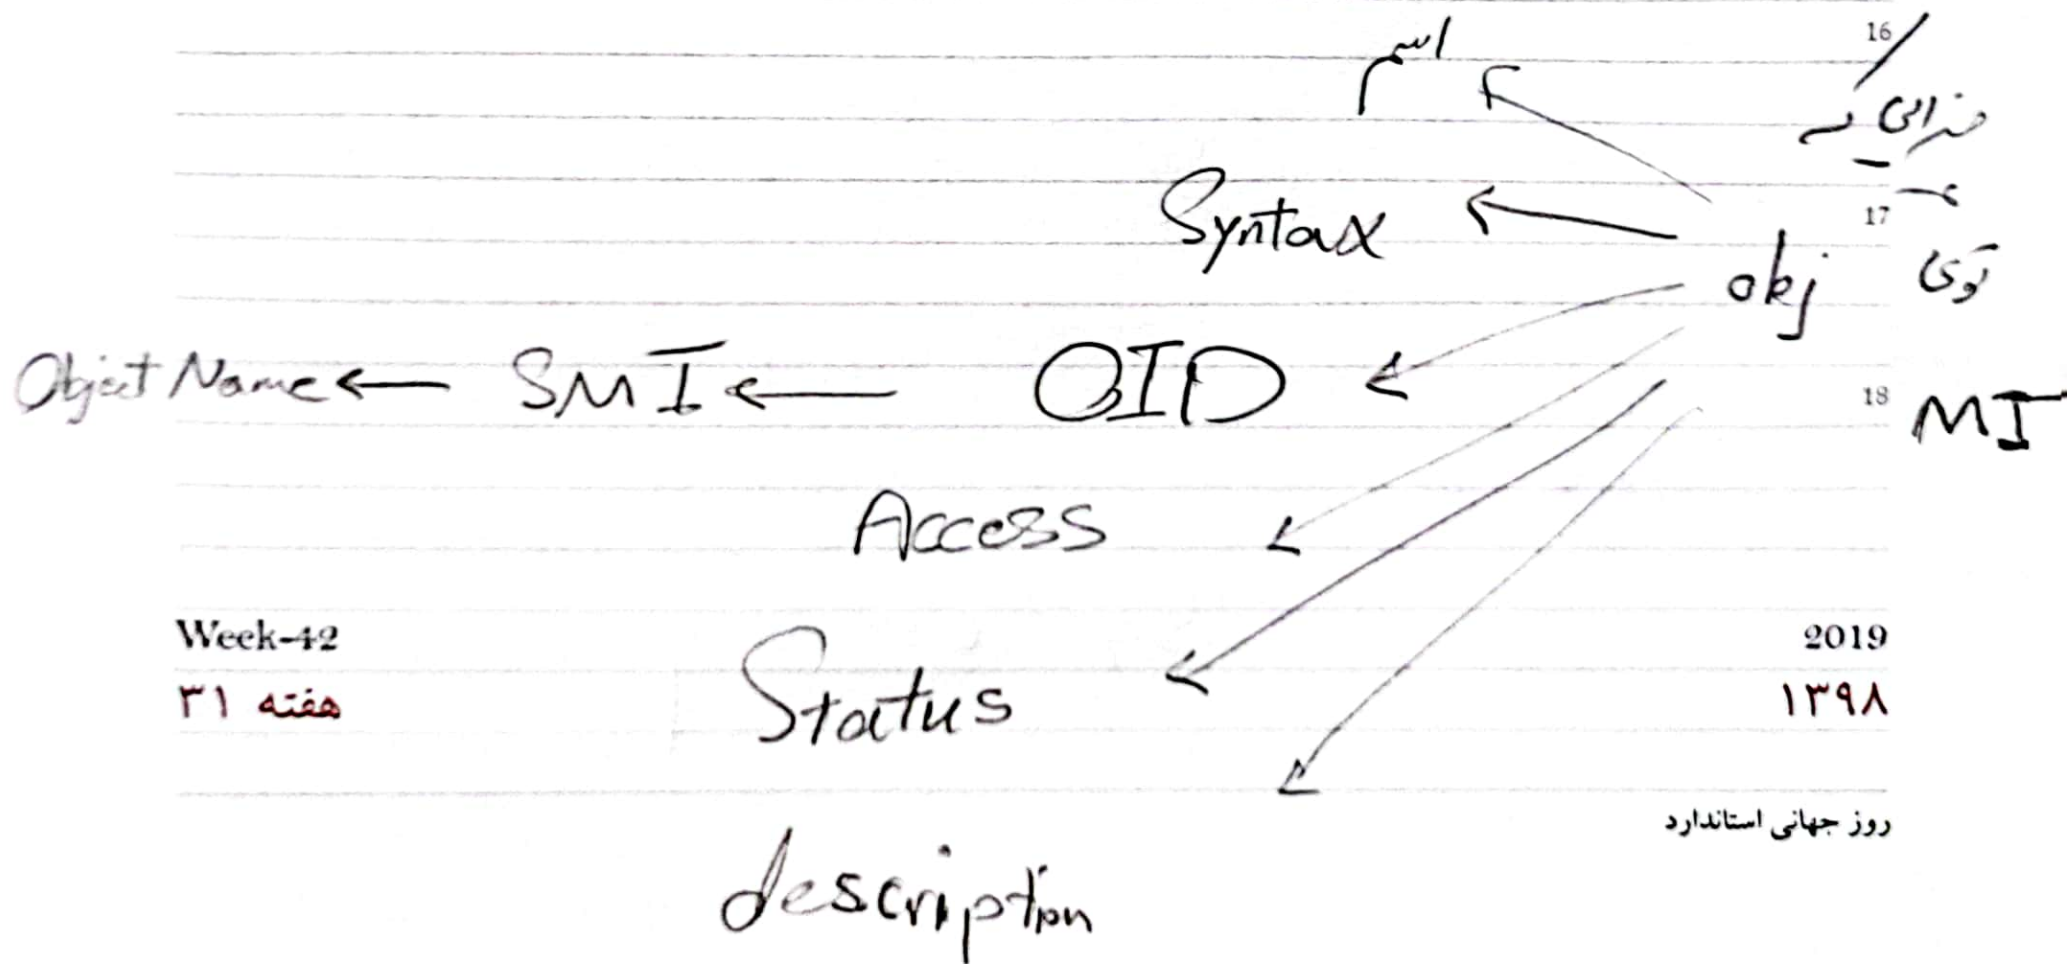 16
اسم
17
Syntax
obj
توی
Object Name ← SMI ← OID
18
MI
Access
Week-42
2019
هفته ۳۱
۱۳۹۸
Status
روز جهانی استاندارد
description